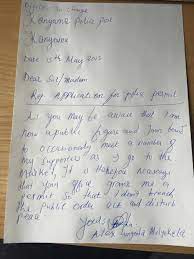 Officer In charge
Kanyama police post
Kanyama
Date 15th May 2015
Dear Sir/Madam
Re: Application for police permit
As you may be aware that I am
now a public figure and I am bound
to occasionally meet a number of
my supporters as I go to the
market, it is therefore
that your office grant me a
permit so that I don't breach
the public order act and disturb
peace
Yours
Alex